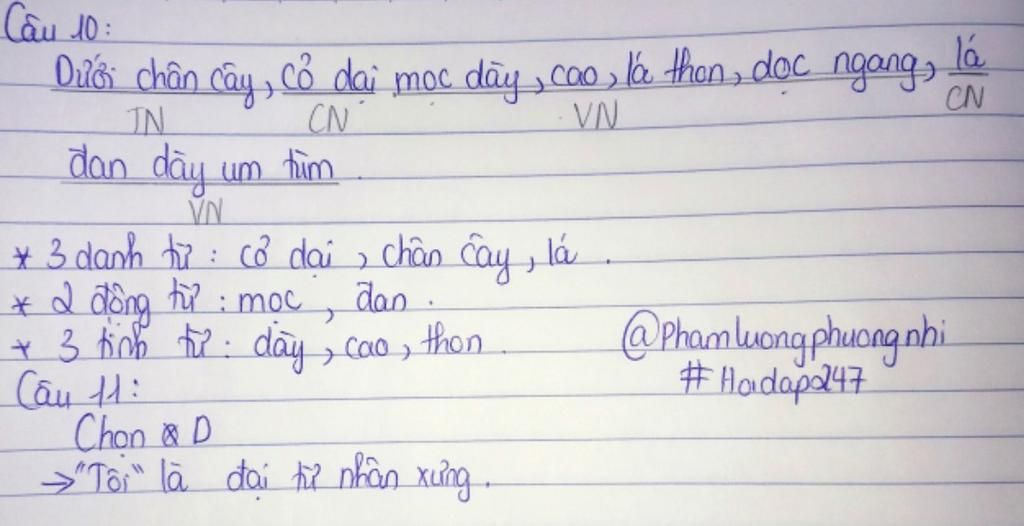 Câu 10:
Dưới chân cây, cỏ dại mọc dày, cao, lá thon, dọc ngang, lá
TN CN VN CN
đan dày um tùm.
VN
* 3 danh từ: cỏ dại, chân cây, lá.
* 2 động từ: mọc, đan.
* 3 tính từ: dày, cao, thon.
@phamluongphuongnhi
#Hoidap247
Câu 11:
Chọn D
→ "Tôi" là đại từ nhân xưng.